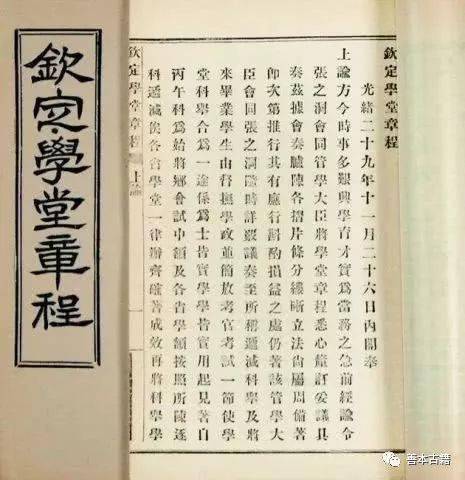 欽定學堂章程
光緒二十九年十一月二十六日內閣奉
上諭方今時事多艱興學育才實為當務之急前經諭令
張之洞會同管學大臣將學堂章程悉心釐訂妥議具
奏茲據會奏臚陳各摺片條分縷晰立法尚屬周備著
即次第推行其有應行斟酌損益之處仍著該管學大
臣會同張之洞隨時詳覈議奏至所稱遞減科舉及將
來畢業學生由督撫學政並簡放考官考試一節使學
堂科舉合為一途係為士皆實學學皆實用起見著自
丙午科為始將鄉會試中額及各省學額按照所陳逐
科遞減俟各省學堂一律辦齊確著成效再將科舉學
欽定學堂章程 上諭
欽定學堂章程
善本古籍